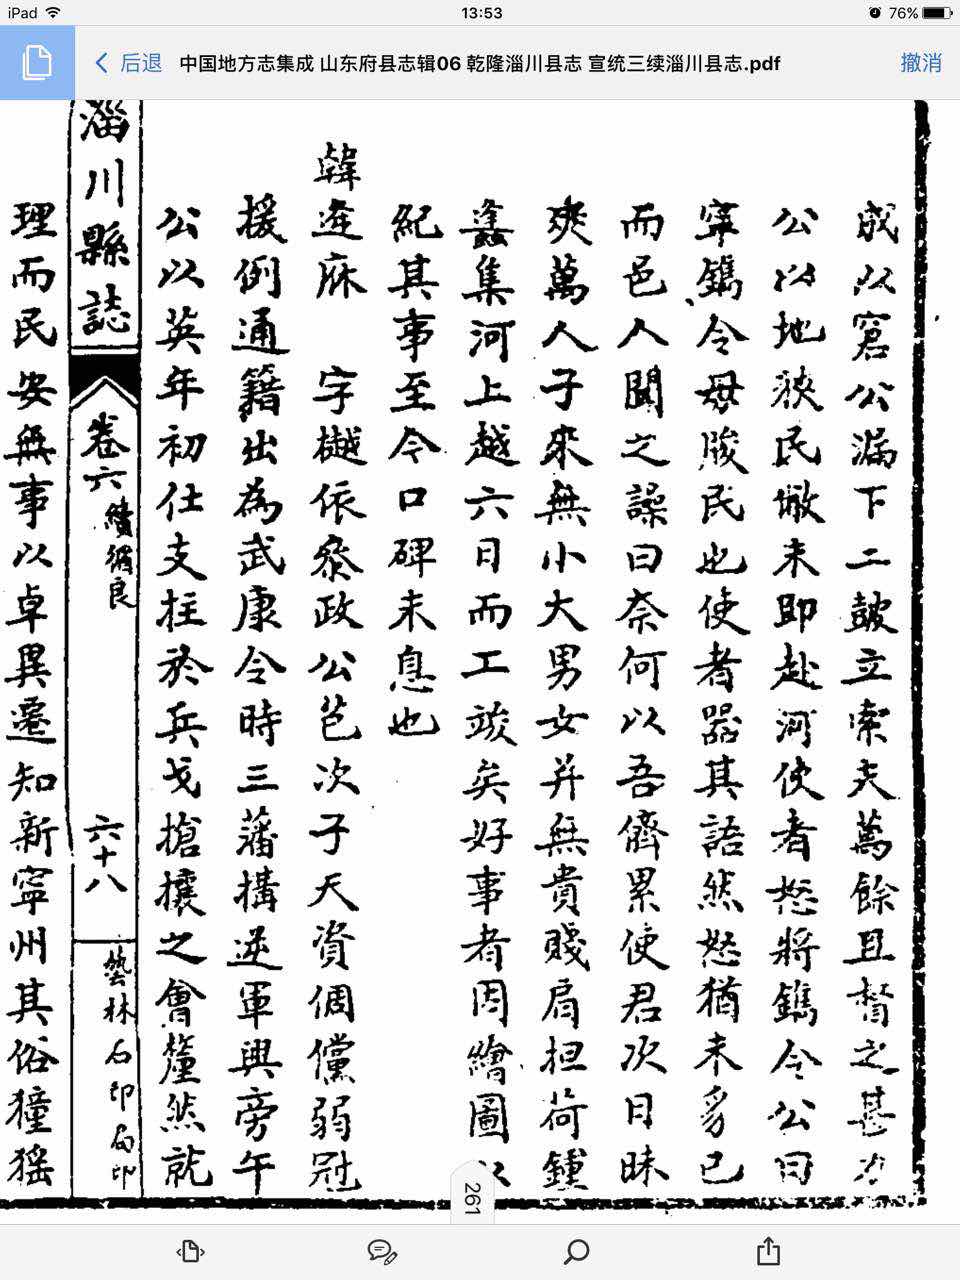 iPad 13:53 76%
后退 中国地方志集成 山东府县志辑06 乾隆淄川县志 宣统三续淄川县志.pdf 撤消
成以窘公漏下二皷立索夫萬餘且督之甚力
公以地狹民未即赴河使者怒將鐫令公曰
寧鐫令毋朘民也使者噐其語然怒猶未豸已
而邑人聞之譟曰奈何以吾儕累使君次日昧
爽萬人子來無小大男女并無貴賤肩担荷鍾
蠭集河上越六日而工竣矣好事者因繪圖以
紀其事至今口碑未息也
韓逰庥 字樾依叅政公芑次子天資倜儻弱冠
援例通籍出為武康令時三藩搆逆軍興旁午
公以英年初仕支拄於兵戈搶攘之會釐然就
淄川縣誌 卷六 續循良 六十八 藝林石印局印
理而民安無事以卓異遷知新寧州其俗獞猺
261